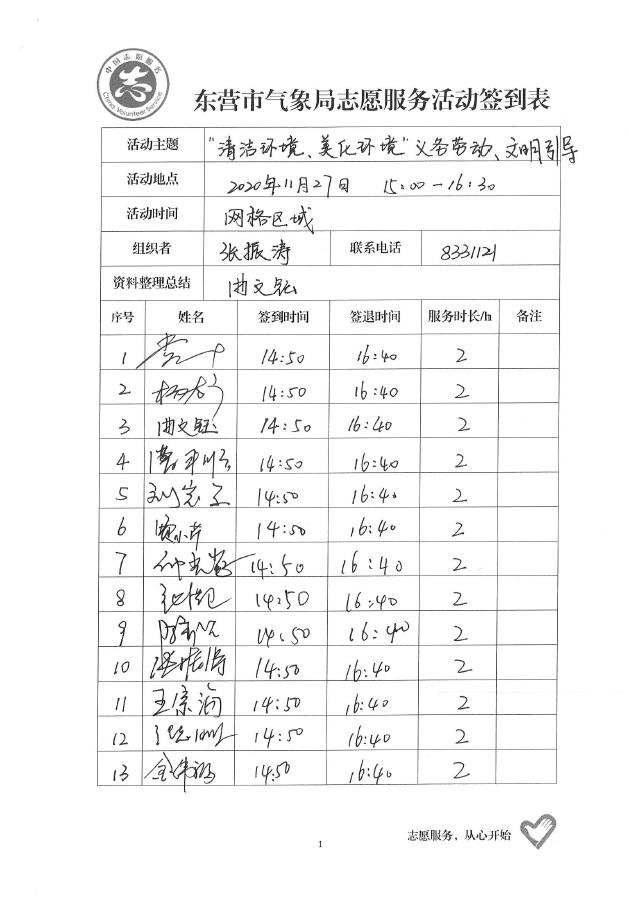 中国志愿服务
China Volunteer Service
东营市气象局志愿服务活动签到表
活动主题 "清洁环境、美化环境"义务劳动、文明引导
活动地点 2020年11月27日 15:00-16:30
活动时间 网格区域
组织者 张振涛 联系电话 8331121
资料整理总结 曲文钰
序号 姓名 签到时间 签退时间 服务时长/h 备注
1 14:50 16:40 2
2 14:50 16:40 2
3 曲文钰 14:50 16:40 2
4 14:50 16:40 2
5 14:50 16:40 2
6 14:50 16:40 2
7 14:50 16:40 2
8 14:50 16:40 2
9 14:50 16:40 2
10 14:50 16:40 2
11 14:50 16:40 2
12 14:50 16:40 2
13 14:50 16:40 2
志愿服务，从心开始
1